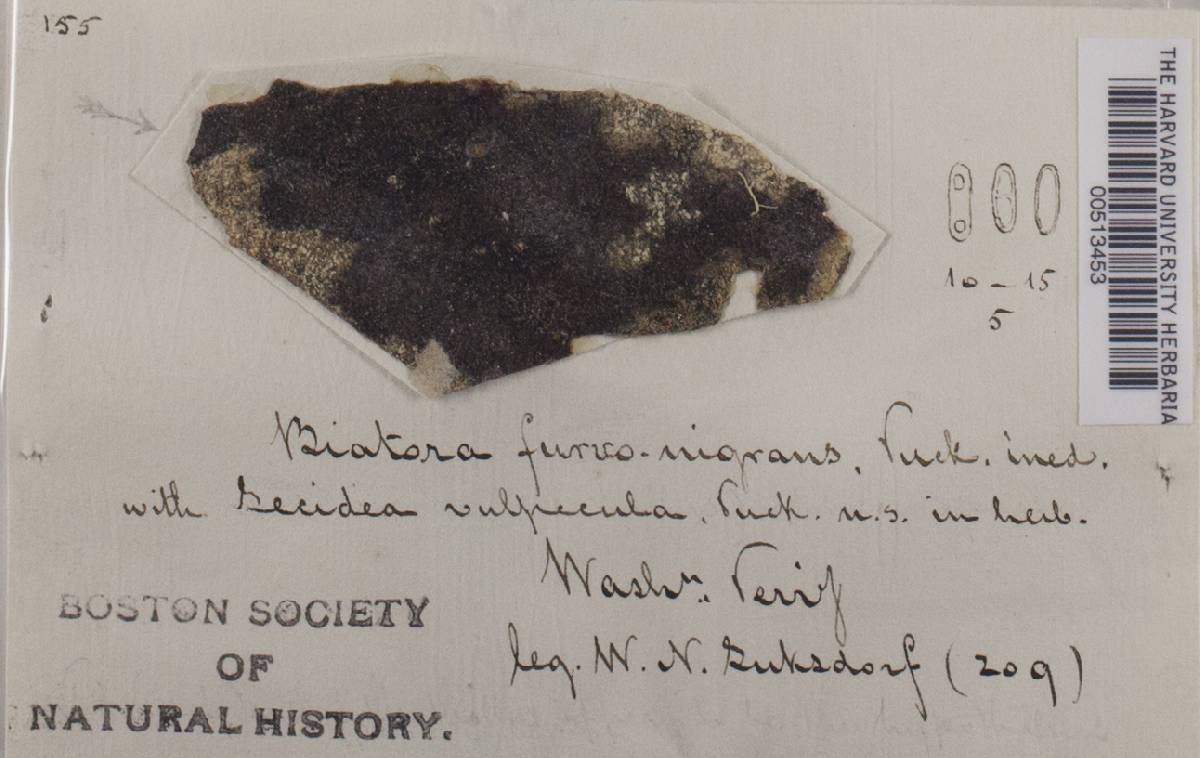 155
THE HARVARD UNIVERSITY HERBARIA
00513453
10 - 15
5
Biatora furvo-nigrans, Tuck. ined.
with Lecidea vulpecula, Tuck. n.s. in herb.
Washn. Territ
leg. W. N. Suksdorf (209)
BOSTON SOCIETY
OF
NATURAL HISTORY.